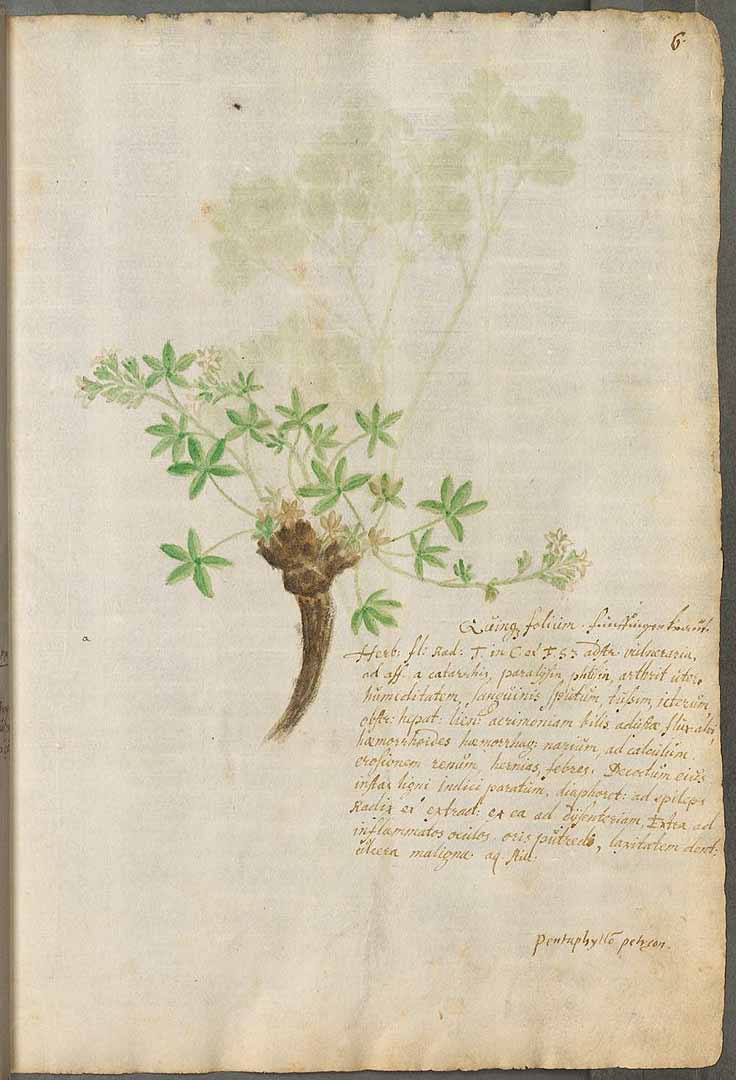 6.
Quinq folium. funffinger kraut.
Herb: fl: Rad: T. in C et F 33 adstr. vulneraria,
ad aff. a catarrhis, paralysin, phtisin, arthrit. uteri
humiditatem, sanguinis sputum, tussim, icterum
obstr: hepat: lien: acrimoniam bilis adustae flux: albi
haemorrhoides haemorrhag: narium, ad calculum.
erosionem renum, hernias, febres. Decoctum eius
instar ligni Indici paratum, diaphoret: ad epileps
Radix et extract: ex ea ad dysenteriam, Extra ad
inflammatos oculos oris putredi, laxitatem dent:
ulcera maligna. aq.
Pentaphyllō petraeon.
a